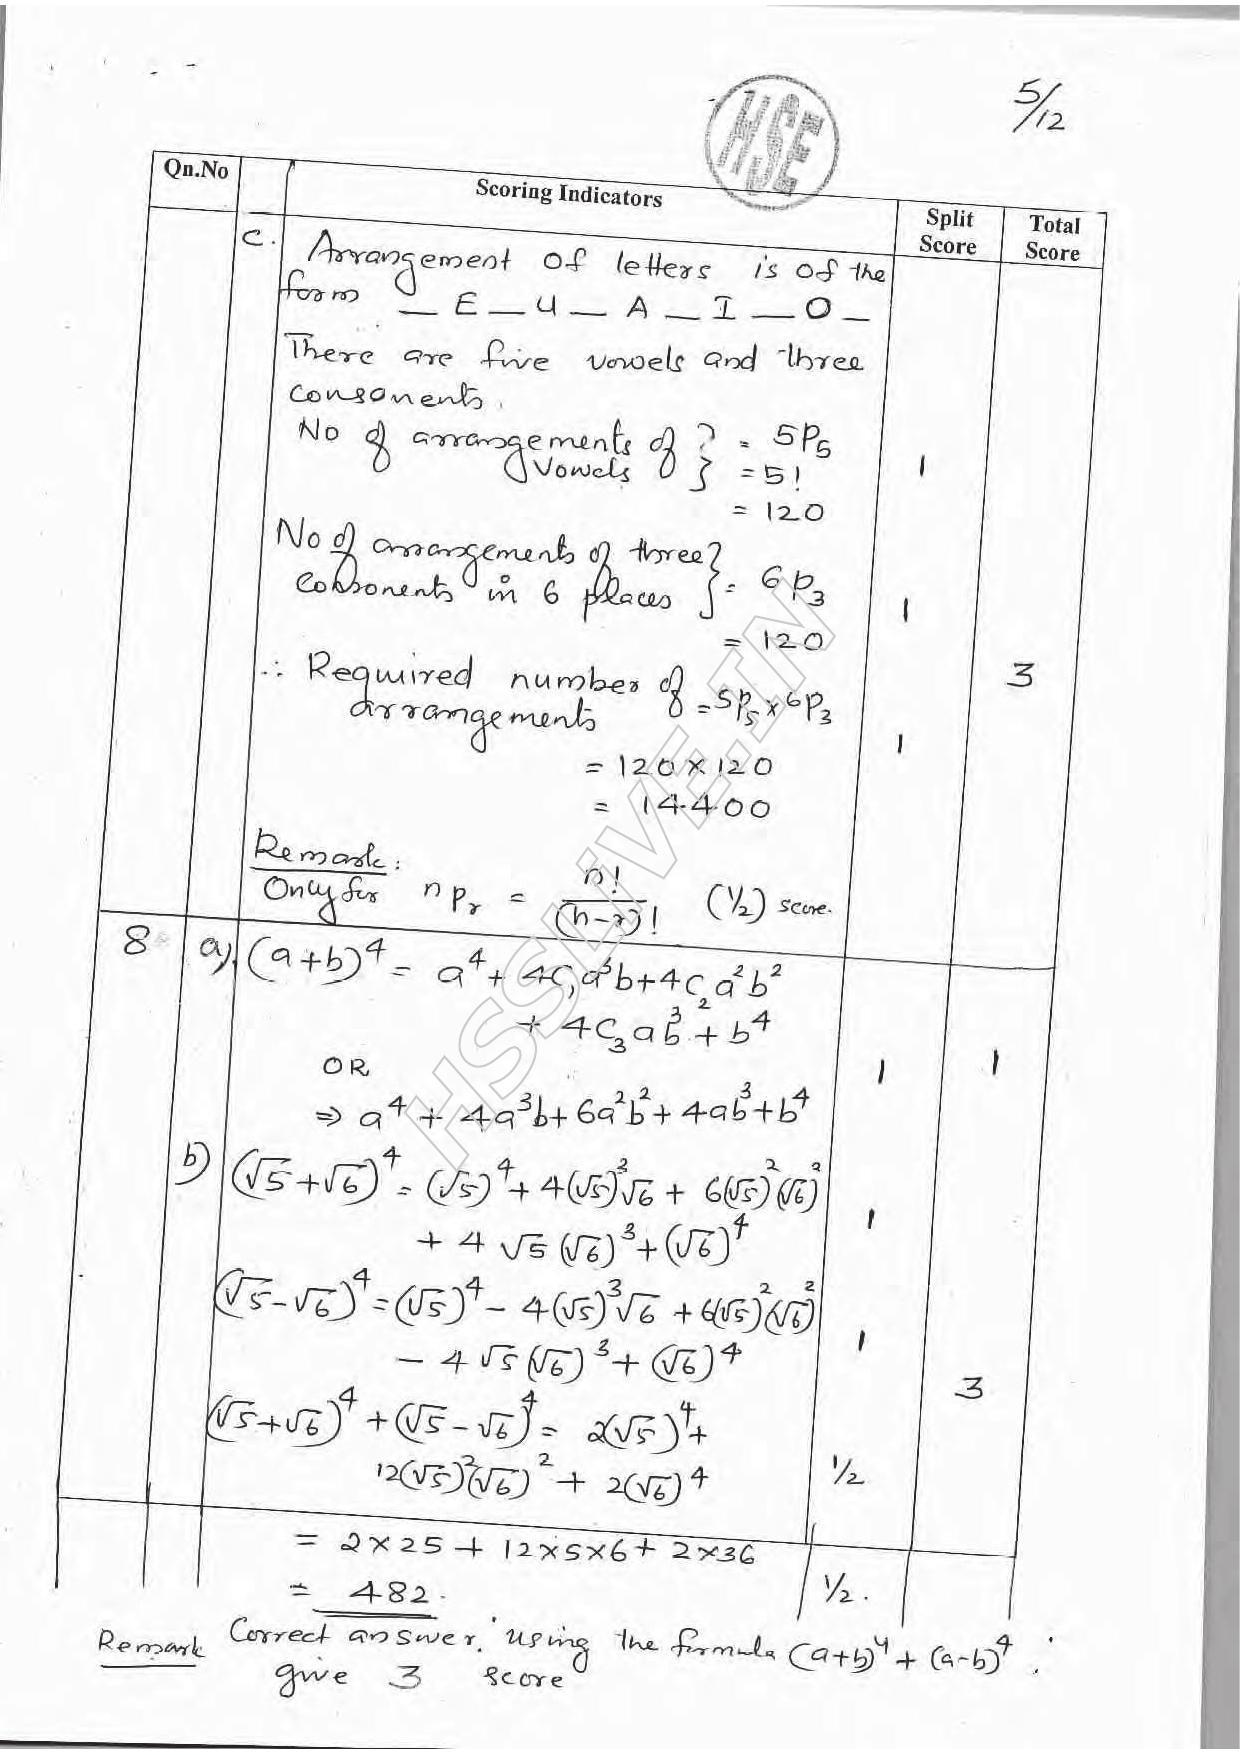 HSE
5/12
Qn.No Scoring Indicators Split Score Total Score
c. Arrangement of letters is of the
form _ E _ U _ A _ I _ O _
There are five vowels and three
consonents.
No of arrangements of vowels } = 5P₅
= 5! 1
= 120
No of arrangements of three
consonents in 6 places } = 6P₃ 1
= 120
∴ Required number of 3
arrangements = 5P₅ × 6P₃ 1
= 120 × 120
= 14400
Remark:
Only for nPᵣ = n!/(n-r)! (1/2) score.
8 a) (a+b)⁴ = a⁴ + 4C₁a³b + 4C₂a²b²
+ 4C₃ab³ + b⁴
OR 1 1
⇒ a⁴ + 4a³b + 6a²b² + 4ab³ + b⁴
b) (√5+√6)⁴ = (√5)⁴ + 4(√5)³√6 + 6(√5)²(√6)²
+ 4√5(√6)³ + (√6)⁴ 1
(√5-√6)⁴ = (√5)⁴ - 4(√5)³√6 + 6(√5)²(√6)²
- 4√5(√6)³ + (√6)⁴ 1
3
(√5+√6)⁴ + (√5-√6)⁴ = 2(√5)⁴ +
12(√5)²(√6)² + 2(√6)⁴ 1/2
= 2×25 + 12×5×6 + 2×36
= 482. 1/2.
Remark Correct answer, using the formula (a+b)⁴ + (a-b)⁴ :
give 3 score
HSSLIVE.IN